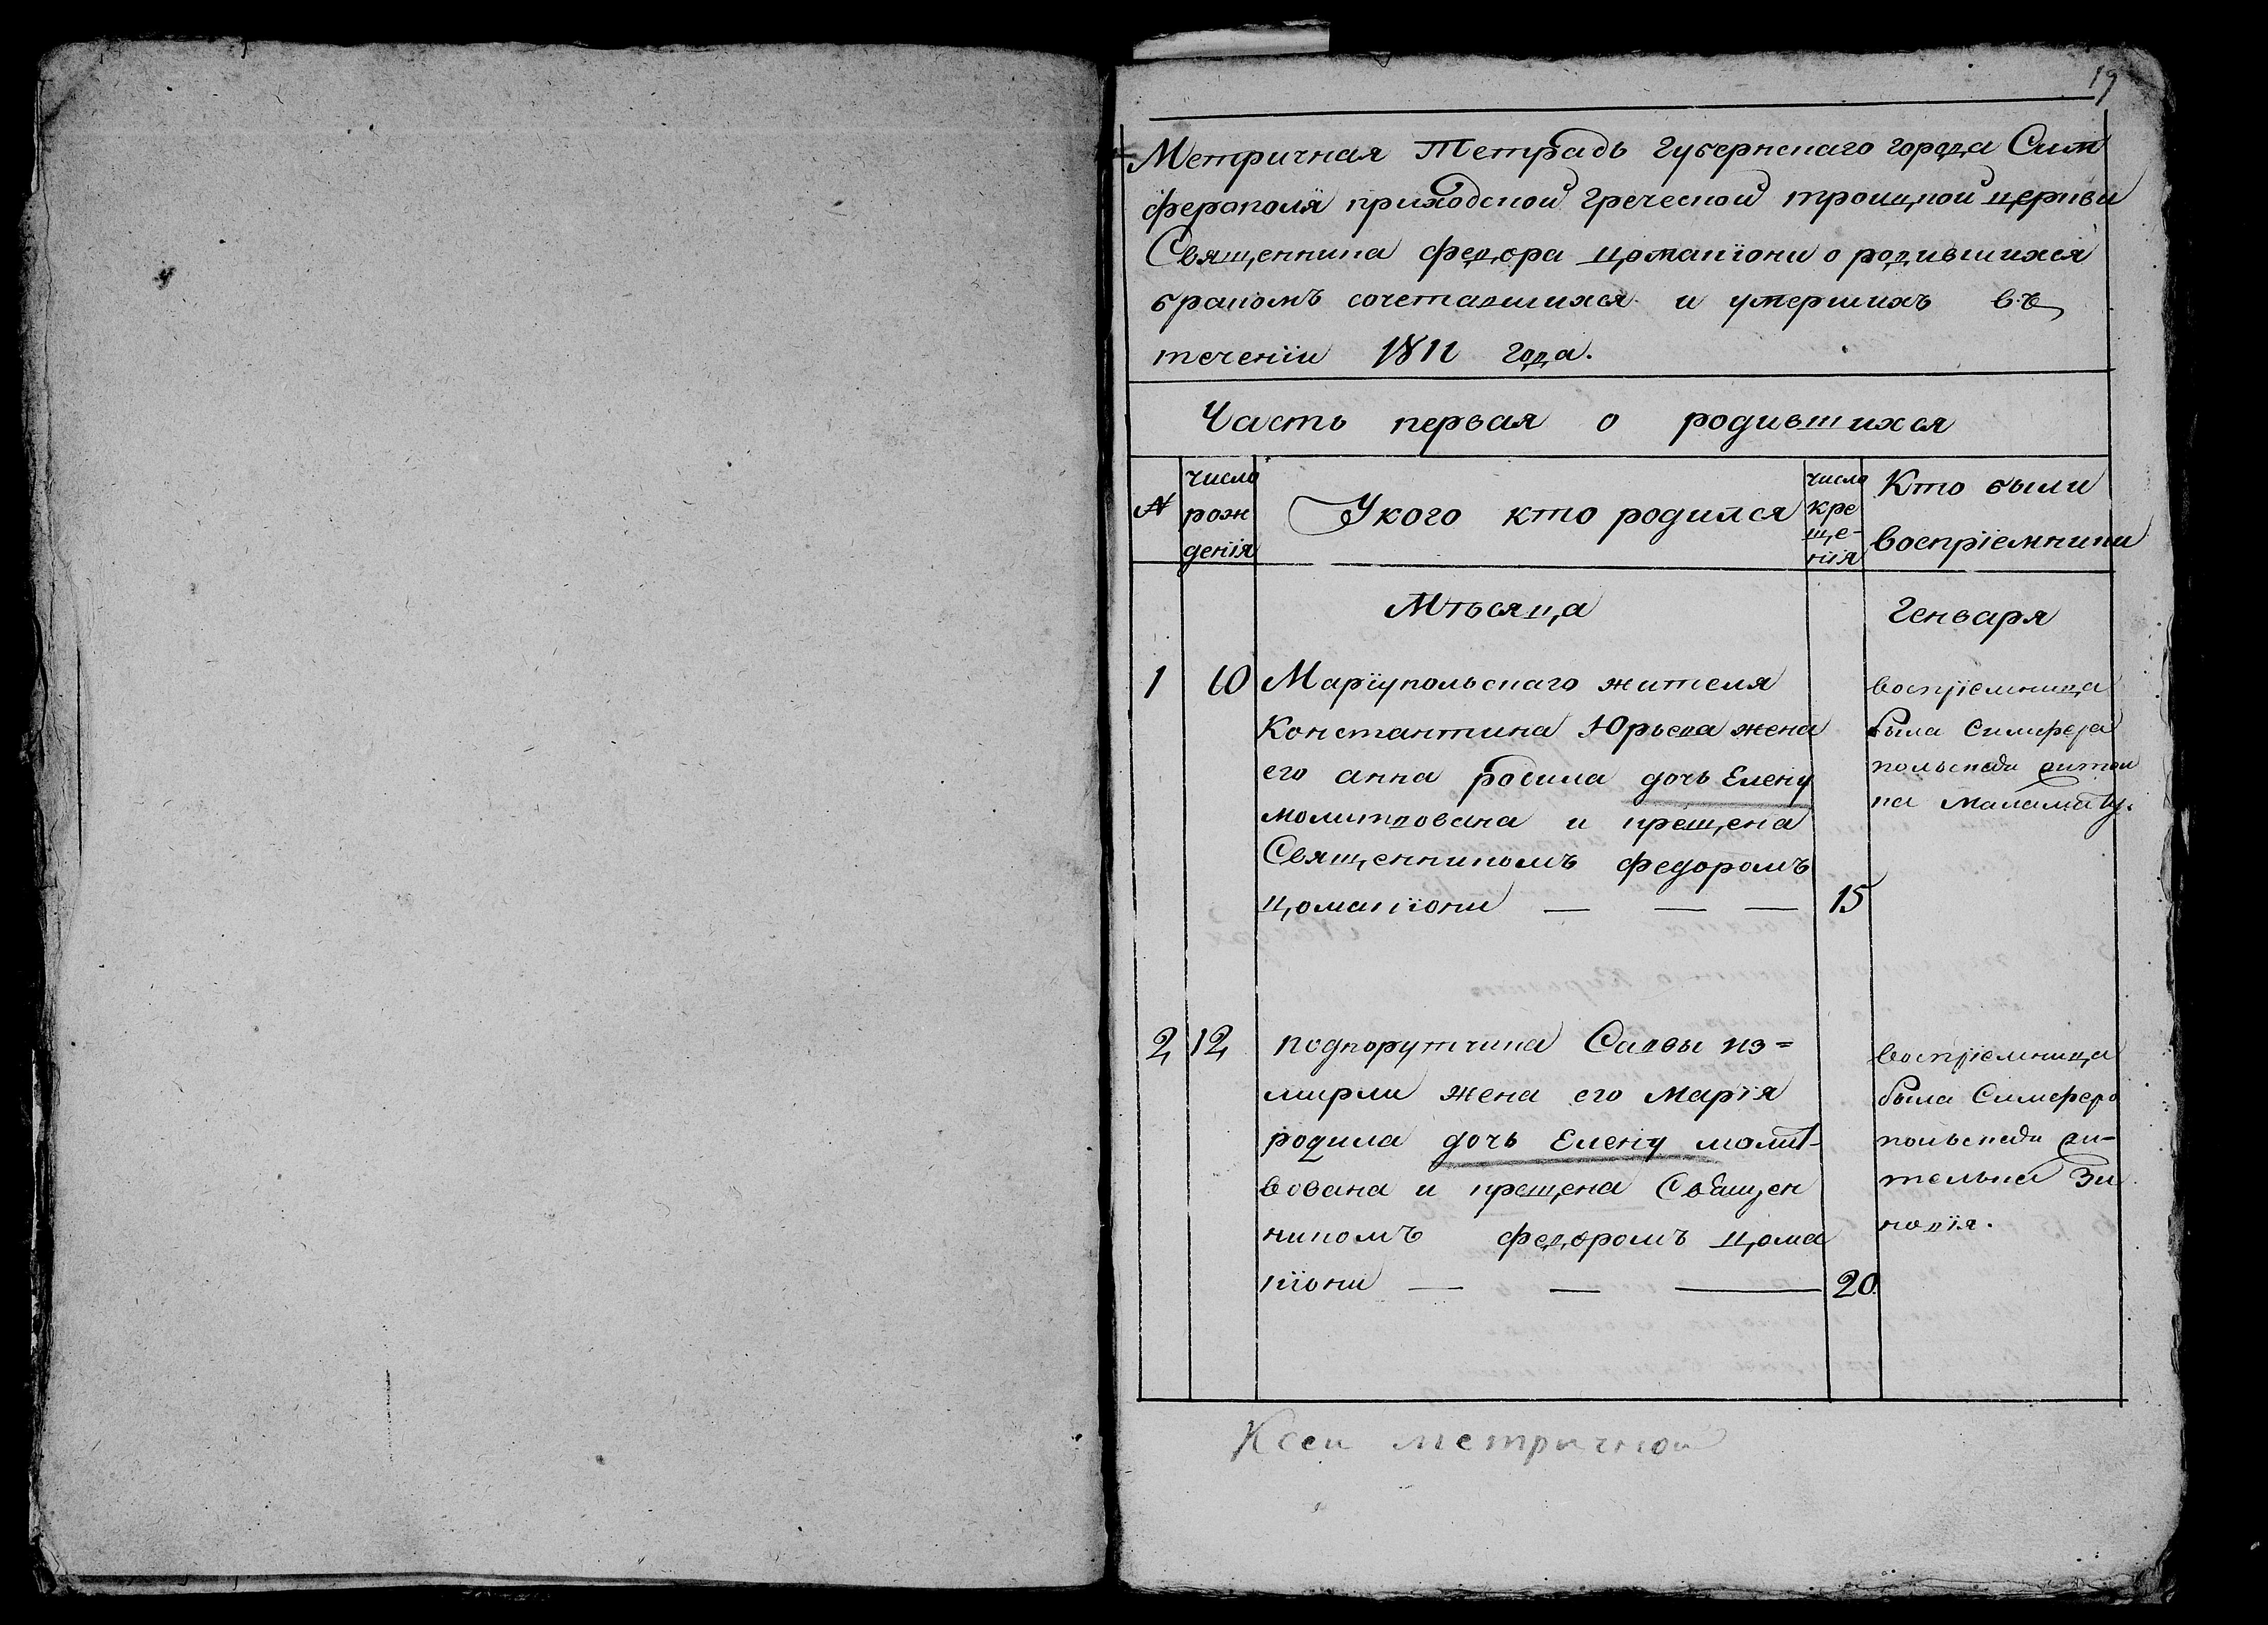 19
Метричная Тетрадь губернскаго города Сим
ферополя приходской греческой троицкой церкви
Священника федора цоманiони о родившихся
бракомъ сочетавшихся и умершихъ въ
теченїи 1811 года.
Часть первая о родившихся
№
число рож денїя
Укого кто родился
число кре ще- нїя
Кто были воспрїемники
Мѣсяца Генваря
1 10 Марїупольскаго жителя
Константина Юрьева жена
его анна родила дочь Елену
молитвована и крещена
Священникомъ федоромъ
цоманїони — — — 15
воспрїемница
была Симферо
польская
на
2 12 подпорутчика Саввы из=
мирли жена его Марїя
родила дочь Елену молит-
вована и крещена Священ
никомъ федоромъ цома
нїони — — — 20
воспрїемница
была Симферо
польская жи-
телька Зи
новїя.
Ксеи метричной